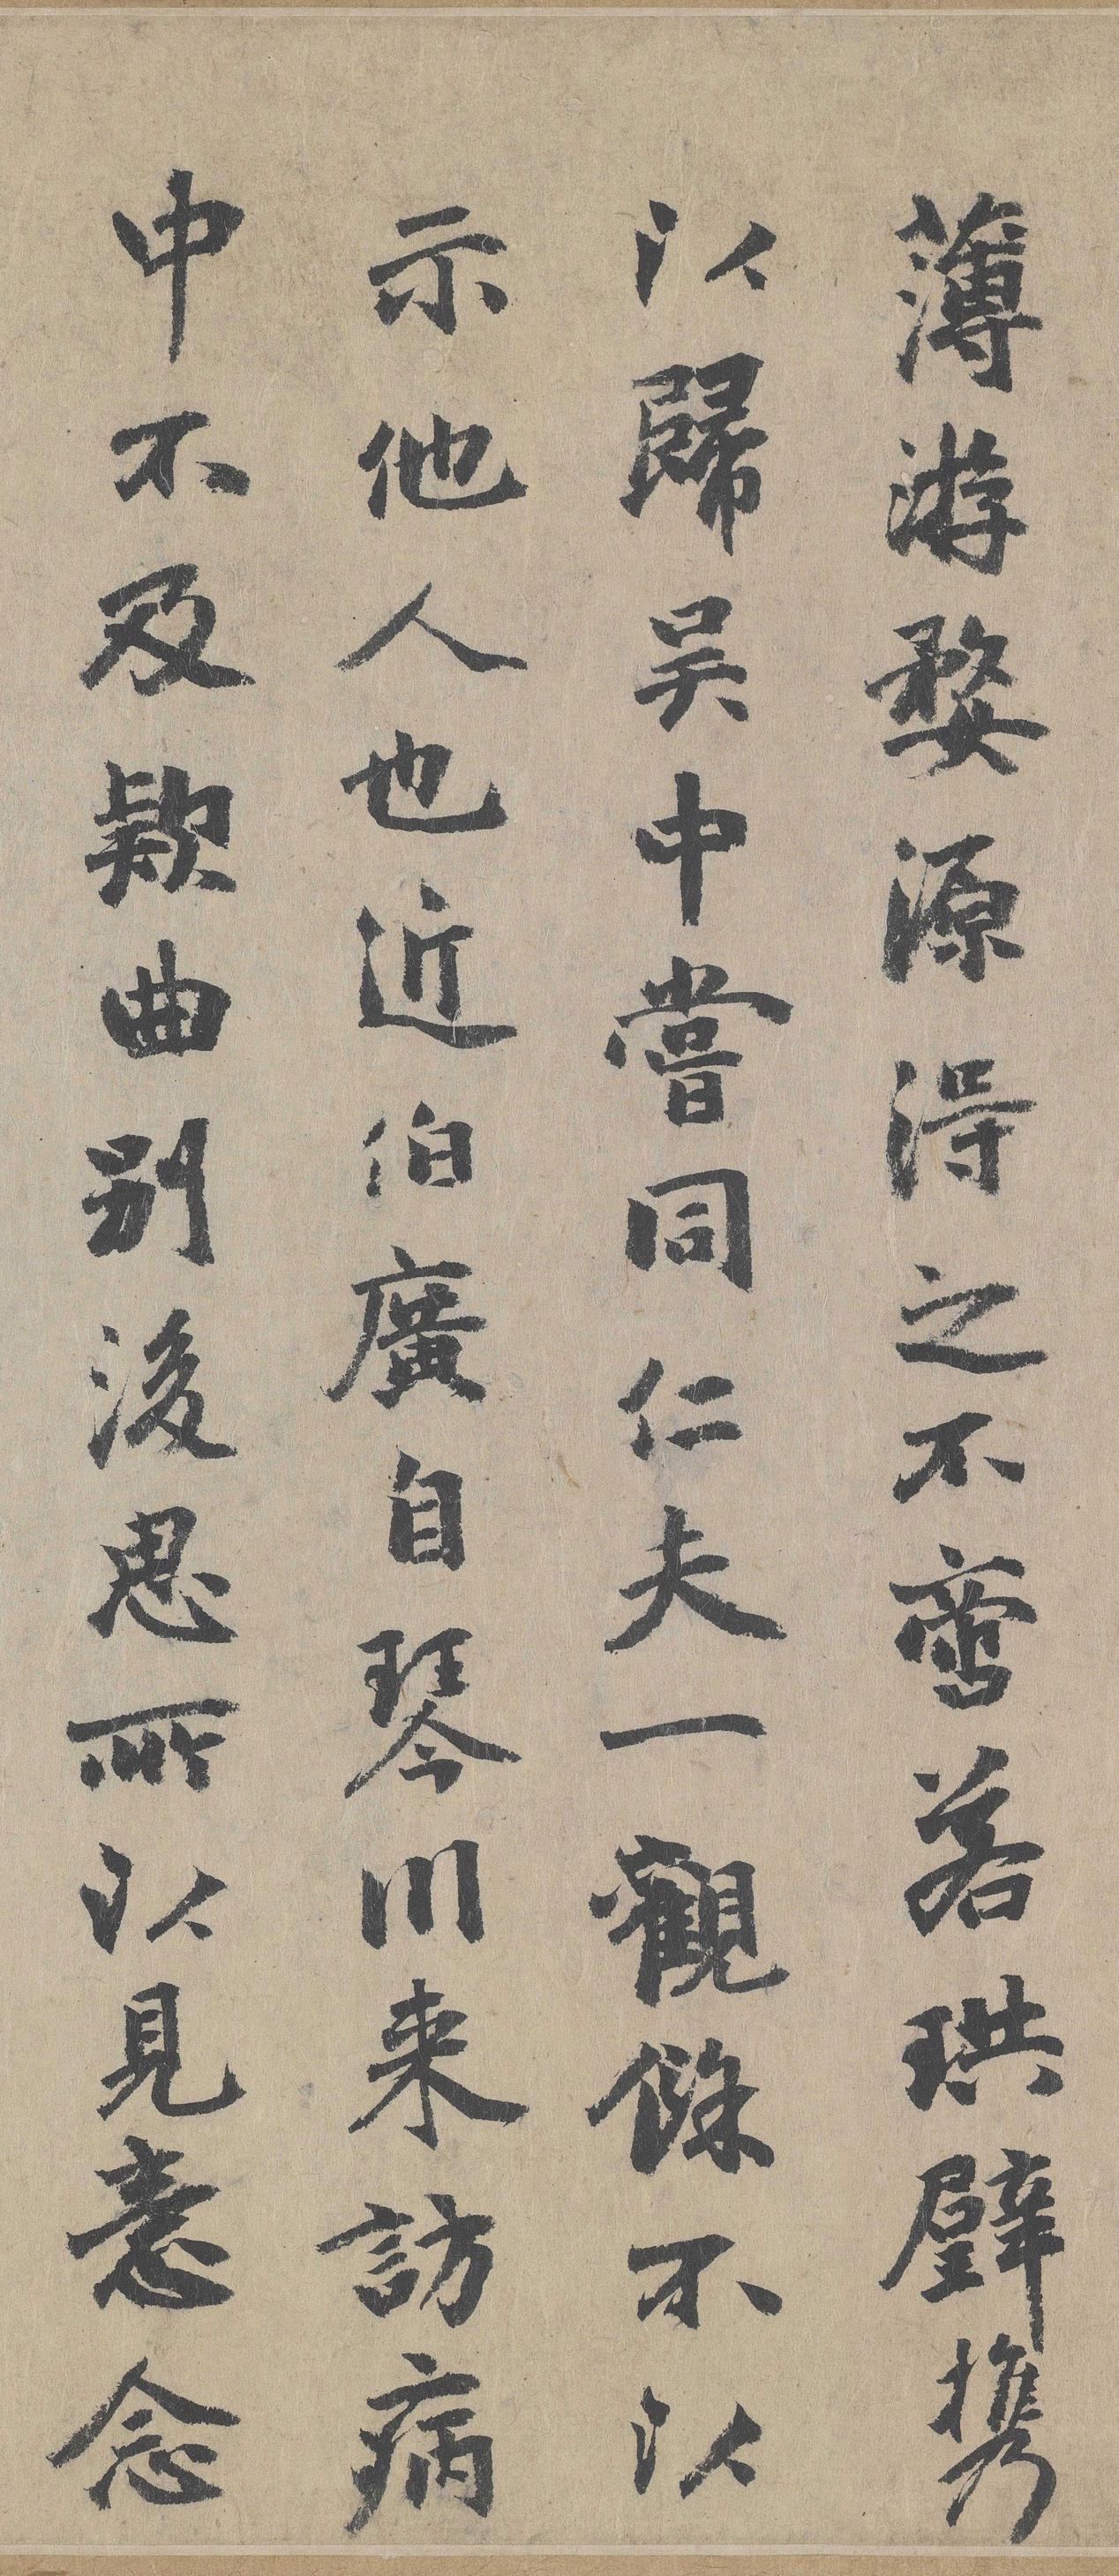 薄游婺源得之不啻若珙璧携
以歸吴中嘗同仁夫一觀餘不以
示他人也近伯廣自琴川来訪病
中不及欵曲别後思所以見意念